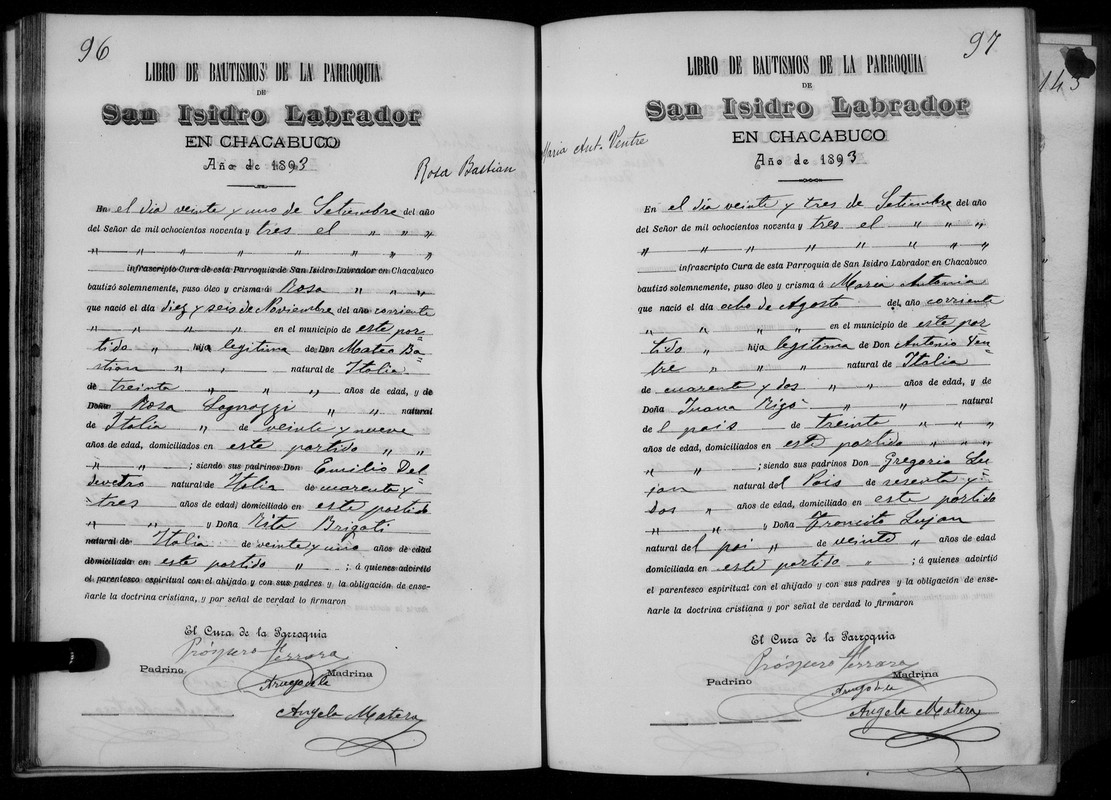 96
LIBRO DE BAUTISMOS DE LA PARROQUIA
DE
San Isidro Labrador
EN CHACABUCO
Año de 1893
Rosa Bastian
En el dia veinte y uno de Setiembre del año
del Señor de mil ochocientos noventa y tres el " " "
" " " " " "
infrascripto Cura de esta Parroquia de San Isidro Labrador en Chacabuco
bautizó solemnemente, puso óleo y crisma á Rosa " " "
que nació el día diez y seis de Noviembre del año corriente
" " " " en el municipio de este par=
tido " hija legitima de Don Mateo Ba=
stian " , natural de Italia
de treinta " " " años de edad, y de
Doña Rosa " " natural
de Italia " de veinte y nueve
años de edad, domiciliados en este partido " "
" " ; siendo sus padrinos Don Emilio Del=
natural de Italia de cuarenta y
=tres años de edad, domiciliado en este partido
" " y Doña Rita Brigati
natural de Italia de veinte y uno años de edad
domiciliada en este partido " ; á quienes advirtió
el parentesco espiritual con el ahijado y con sus padres y la obligación de ense-
ñarle la doctrina cristiana, y por señal de verdad lo firmaron
El Cura de la Parroquia
Próspero Ferrara
Padrino Madrina
Arugodela
Angela Matera
97
LIBRO DE BAUTISMOS DE LA PARROQUIA
DE
San Isidro Labrador
EN CHACABUCO
Año de 1893
Maria Ant. Ventre
En el dia veinte y tres de Setiembre del año
del Señor de mil ochocientos noventa y tres el " " "
" " " " " "
infrascripto Cura de esta Parroquia de San Isidro Labrador en Chacabuco
bautizó solemnemente, puso óleo y crisma á Maria Antonia
que nació el día ocho de Agosto del año corriente
" " " " en el municipio de este par=
tido " hija legitima de Don Antonio Ven=
tre " " " natural de Italia
de cuarenta y dos " " años de edad, y de
Doña Juana Rigo " " natural
de l pais de treinta " " "
años de edad, domiciliados en este partido " " "
" " ; siendo sus padrinos Don Gregorio Lu=
jan natural del Pais de sesenta y=
dos " años de edad, domiciliado en este partido
" " y Doña Transito Lujan
natural del pai " de veinte " años de edad
domiciliada en este partido " ; á quienes advirtió
el parentesco espiritual con el ahijado y con sus padres y la obligación de ense-
ñarle la doctrina cristiana y por señal de verdad lo firmaron
El Cura de la Parroquia
Próspero Ferrara
Padrino Madrina
Arugodela
Angela Matera
143